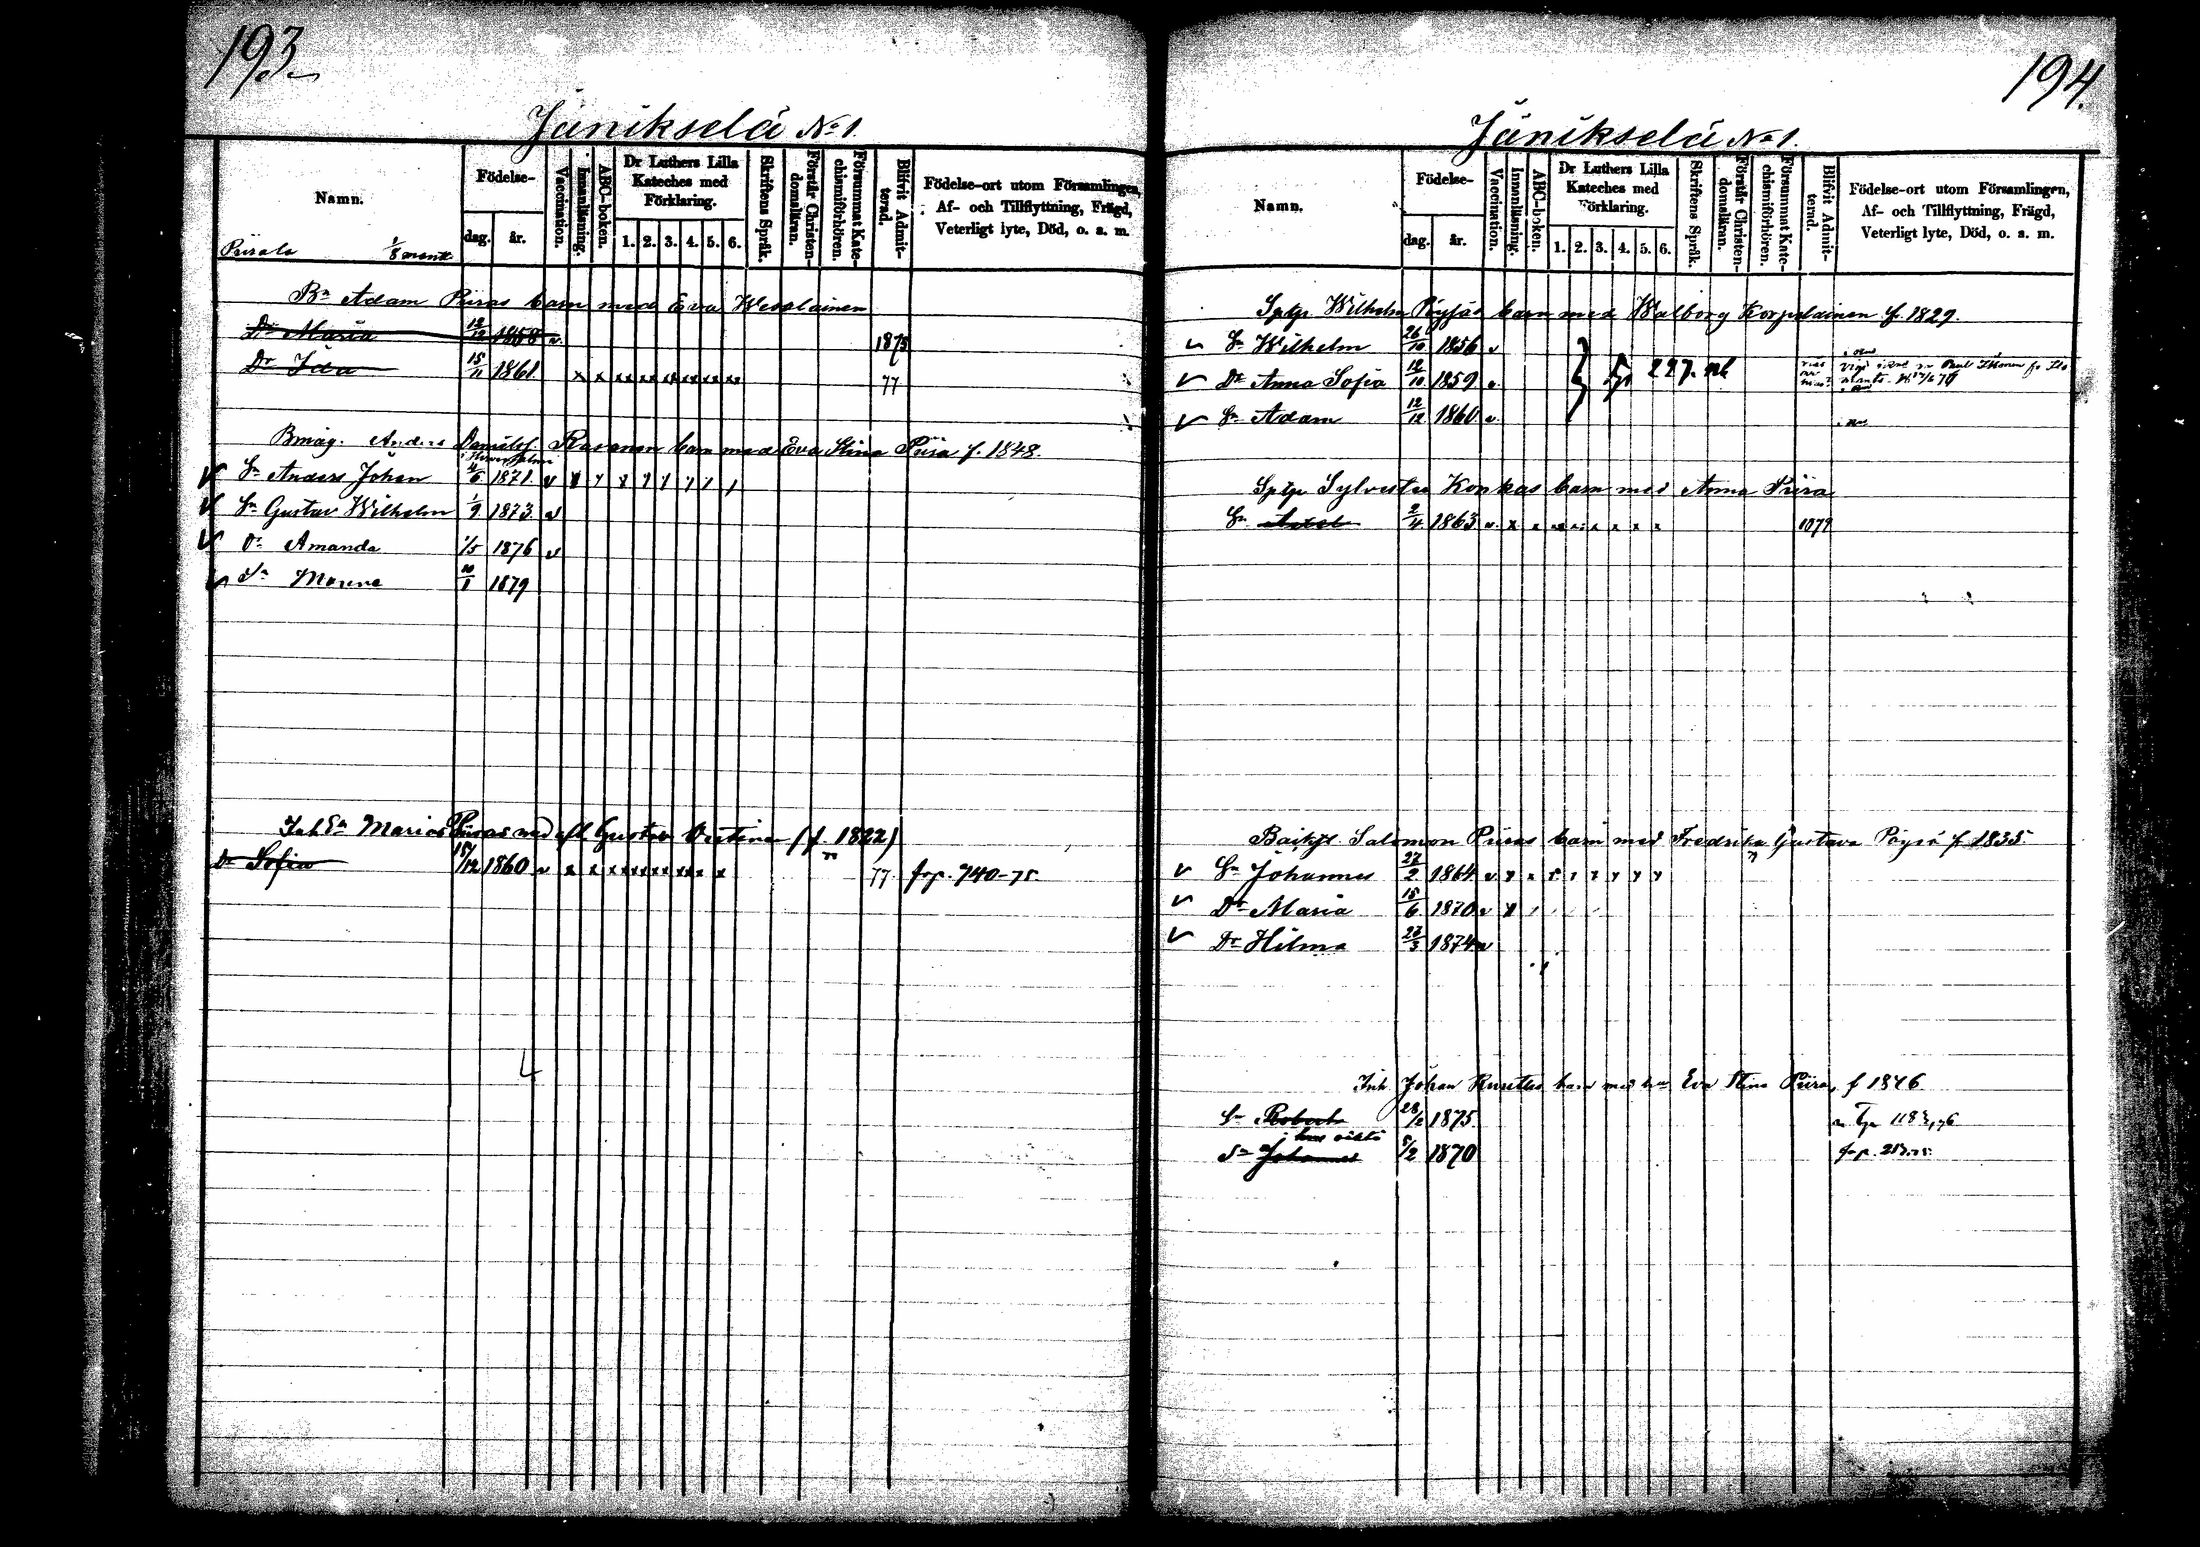 193.
Jänikselä No 1.
Namn.
Födelse-
dag. år.
Vaccination.
Innanläsning.
ABC-boken.
Dr Luthers Lilla Kateches med Förklaring.
1. 2. 3. 4. 5. 6.
Skriftens Språk.
Förstår Christendomsläran.
Försummat Katechismiförhören.
Blifvit Admitterad.
Födelse-ort utom Församlingen, Af- och Tillflyttning, Frägd, Veterligt lyte, Död, o. a. m.
Piirala 1/8 mantl
Bn Adam Piiras barn med Eva Wesalainen
Dr Maria 12/12 1858 v 1875
Dr Ida 15/11 1861. x x x x x x x x 77
Bmåg. Anders Danielss. Rasanen barn med Eva Stina Piira f. 1848.
Sn Anders Johan 4/6 1871. v
Sn Gustav Wilhelm 1/9 1873. v
Dr Amanda 1/5 1876 v
1879
Inh Maria Piiras med afl Gustav (f. 1822)
Dr Sofia 15/12 1860 v x x x x x x x x 77 frp. 740-75.
194.
Jänikselä No 1.
Namn.
Födelse-
dag. år.
Vaccination.
Innanläsning.
ABC-boken.
Dr Luthers Lilla Kateches med Förklaring.
1. 2. 3. 4. 5. 6.
Skriftens Språk.
Förstår Christendomsläran.
Försummat Katechismiförhören.
Blifvit Admitterad.
Födelse-ort utom Församlingen, Af- och Tillflyttning, Frägd, Veterligt lyte, Död, o. a. m.
Sptgr Wilhelm Pöyjäs barn med Walborg Korpelainen f. 1829.
Sn Wilhelm 26/10 1856 v
Dr Anna Sofia 12/10 1859 v. 227.
Sn Adam 12/12 1860. v.
Sptgr Sylvester Konkas barn med Anna Piira
Sn 2/4 1863 v. x x x x x x x x 1879
Salomon Piiras barn med Fredrika Gustava Pöysä f. 1835.
Sn Johannes 27/2 1864. v
Dr Maria 15/6 1870 v
Dr Hilma 27/3 1874 v
Inh. Johan barn med Eva Stina Piira, f 1846
Sn Robert 28/2 1875.
Sn Johannes 5/2 1870